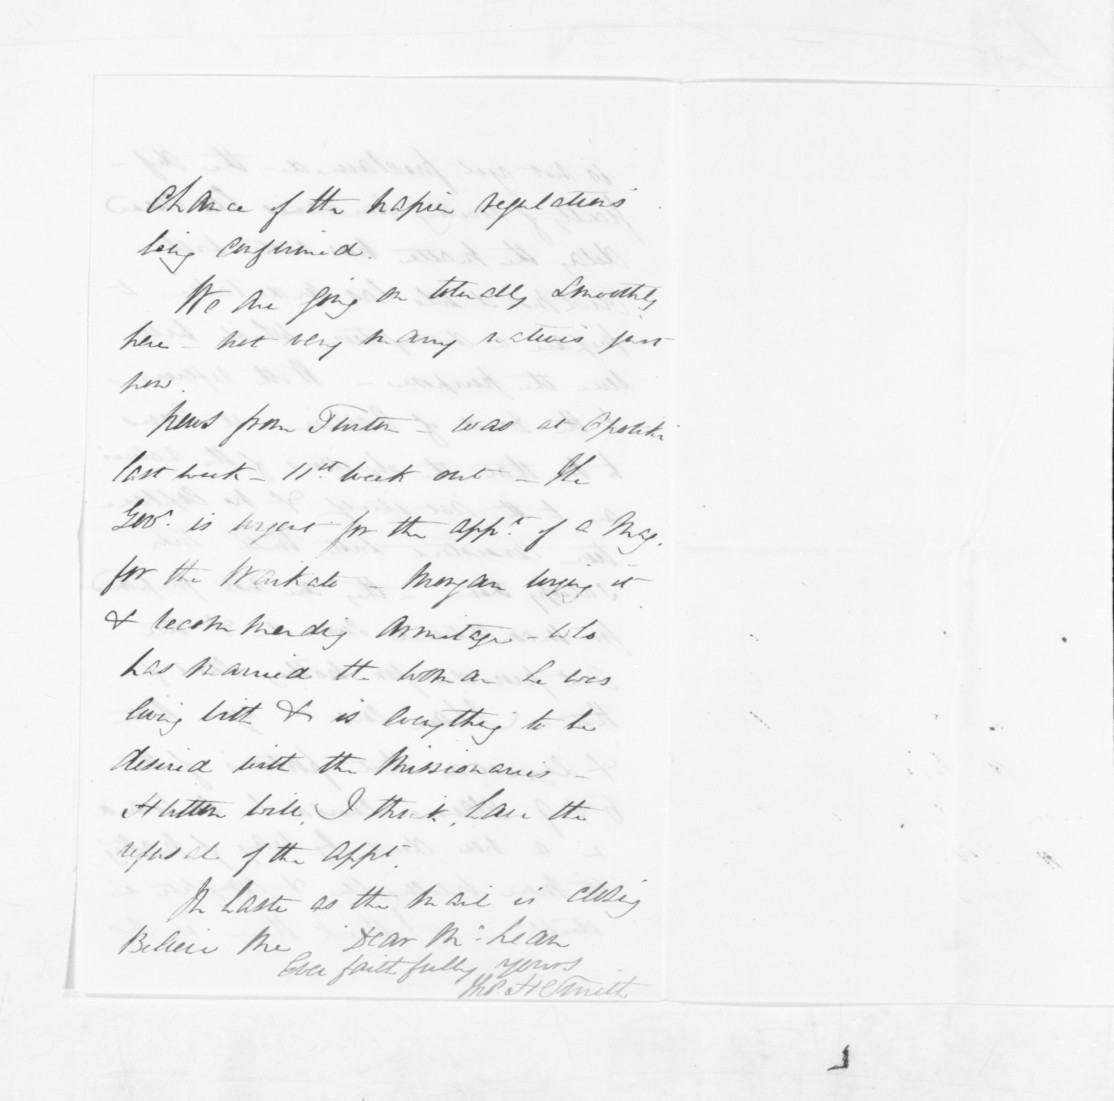 chance of the Napier regulations
being confirmed.
We are going on tolerably smoothly
here - not very many natives just
now.
News from Turton - was at Opotiki
last week - 11th week out - The
Govr. is urgent for the appt. of a Mag.
for the Waikato - Morgan urging it
& recommending Armitage - who
has married the woman he was
living with & is everything to be
desired with the Missionaries -
Hutton will, I think, have the
refusal of the appt.
In haste as the mail is closing
Believe me Dear McLean
Ever faithfully yours
Thos. H Smith